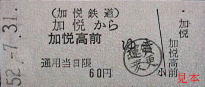 52.-7.31.
(加悦鉄道)
加悦から
加悦高前 ゆき
通用当日限
60円
変更
・加悦
加悦高前
小
見本